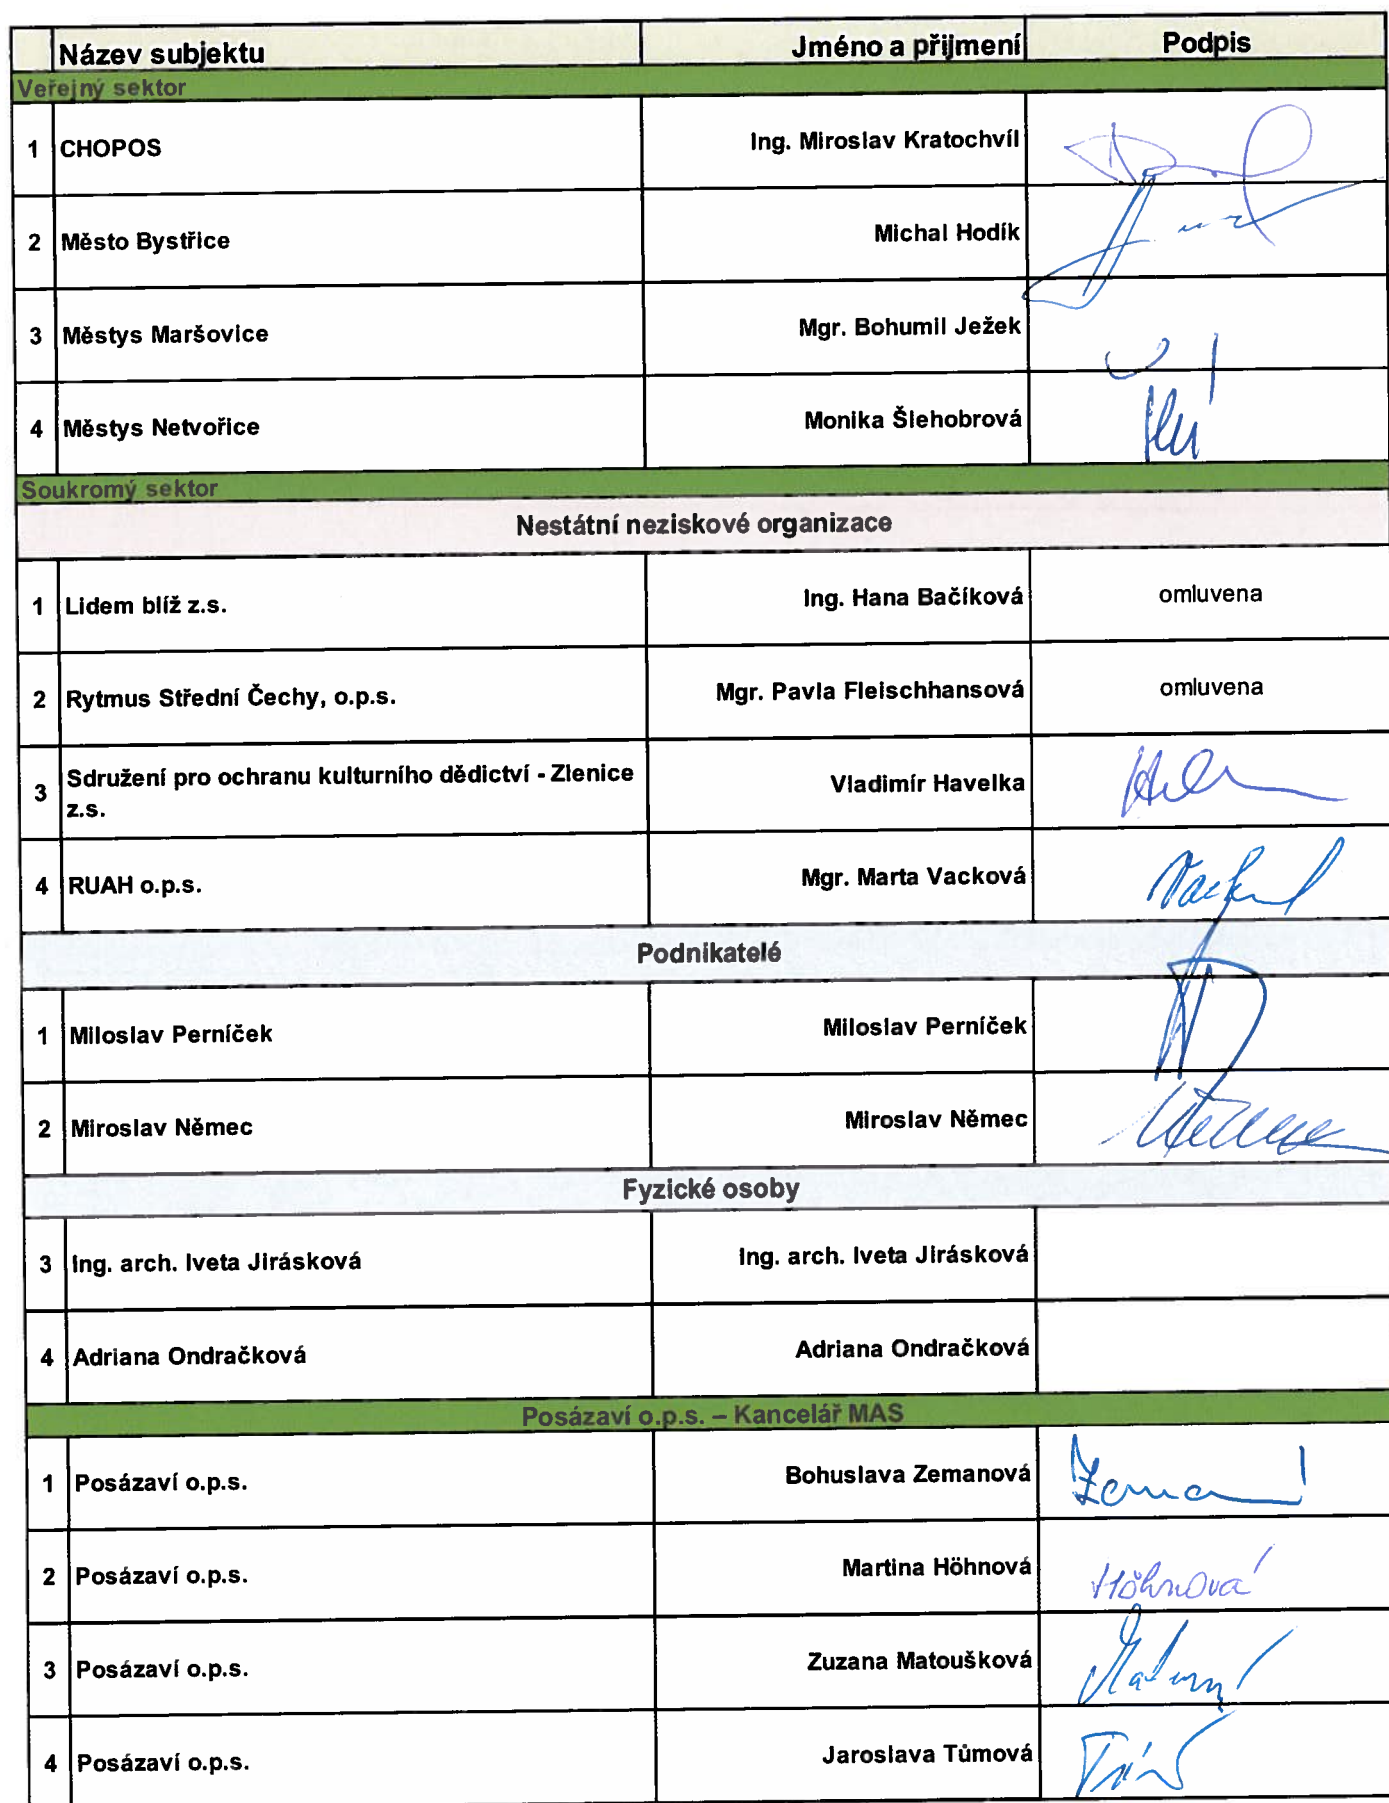 Název subjektu Jméno a přijmení Podpis
Veřejný sektor
1 CHOPOS Ing. Miroslav Kratochvíl
2 Město Bystřice Michal Hodík
3 Městys Maršovice Mgr. Bohumil Ježek
4 Městys Netvořice Monika Šlehobrová
Soukromý sektor
Nestátní neziskové organizace
1 Lidem blíž z.s. Ing. Hana Bačíková omluvena
2 Rytmus Střední Čechy, o.p.s. Mgr. Pavla Fleischhansová omluvena
3 Sdružení pro ochranu kulturního dědictví - Zlenice Vladimír Havelka
z.s.
4 RUAH o.p.s. Mgr. Marta Vacková
Podnikatelé
1 Miloslav Perníček Miloslav Perníček
2 Miroslav Němec Miroslav Němec
Fyzické osoby
3 Ing. arch. Iveta Jirásková Ing. arch. Iveta Jirásková
4 Adriana Ondračková Adriana Ondračková
Posázaví o.p.s. – Kancelář MAS
1 Posázaví o.p.s. Bohuslava Zemanová
2 Posázaví o.p.s. Martina Höhnová Höhnová
3 Posázaví o.p.s. Zuzana Matoušková
4 Posázaví o.p.s. Jaroslava Tůmová